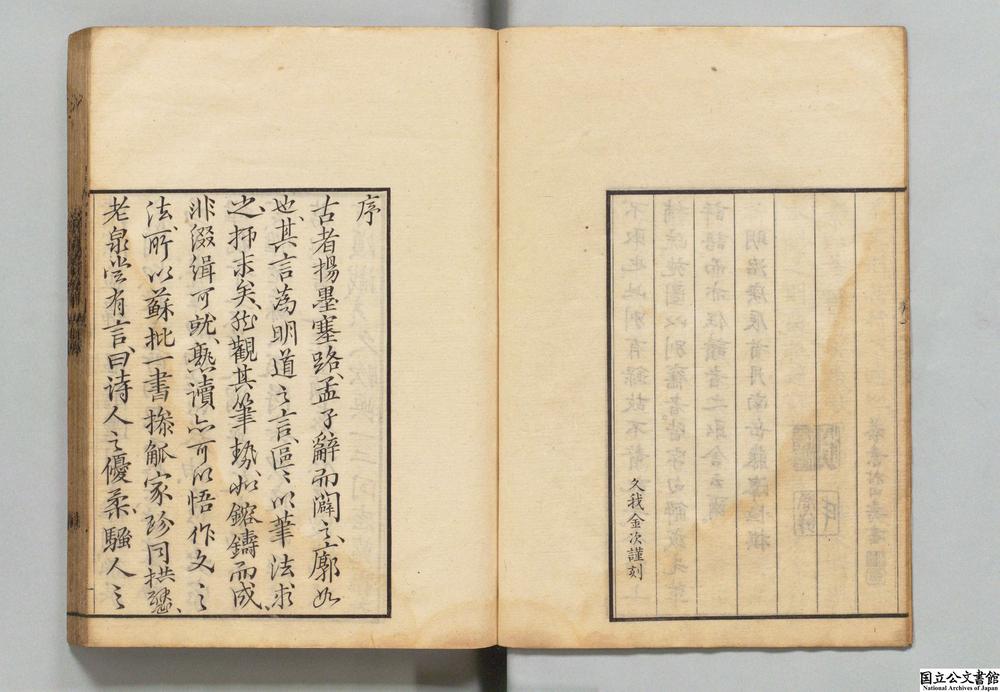 久我金次謹刻
序
古者揚墨塞路孟子辭而闢之廓如
也其言為明道之言區〻以筆法求
之抑末矣然觀其筆勢如鎔鑄而成
非綴緝可就熟讀之可以悟作文之
法所以蘇批一書操觚家珍同拱璧
老泉嘗有言曰诗人之優柔騷人之
国立公文書館
National Archives of Japan